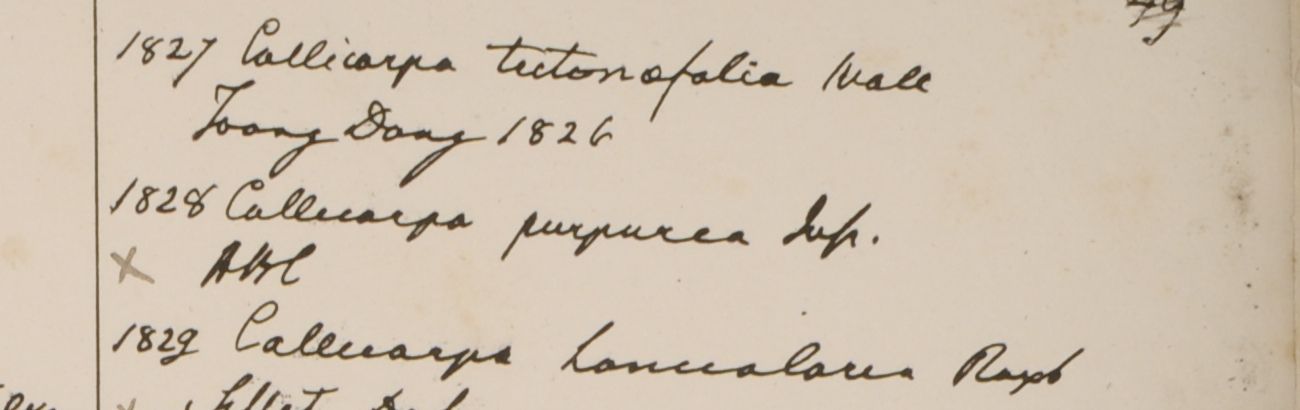 1827 Callicarpa tectonaefolia Wall
Toong Dong 1826
1828 Callicarpa purpurea Juss.
x HBC
1829 Callicarpa lanceolaria Roxb